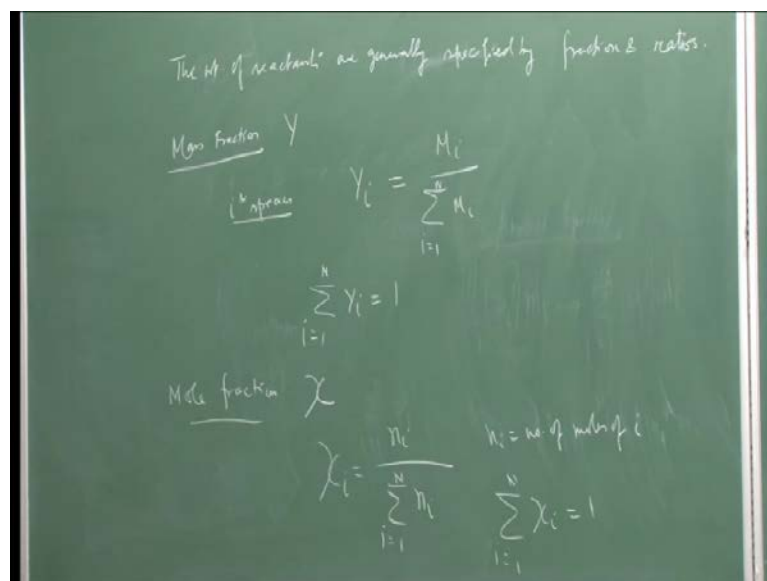 The wt. of reactants are generally specified by fraction & ratios.
Mass fraction Y
iᵗʰ species Y_i = M_i / ∑_{i=1}^{N} M_i
∑_{i=1}^{N} Y_i = 1
Mole fraction X
X_i = n_i / ∑_{i=1}^{N} n_i n_i = no. of moles of i
∑_{i=1}^{N} X_i = 1